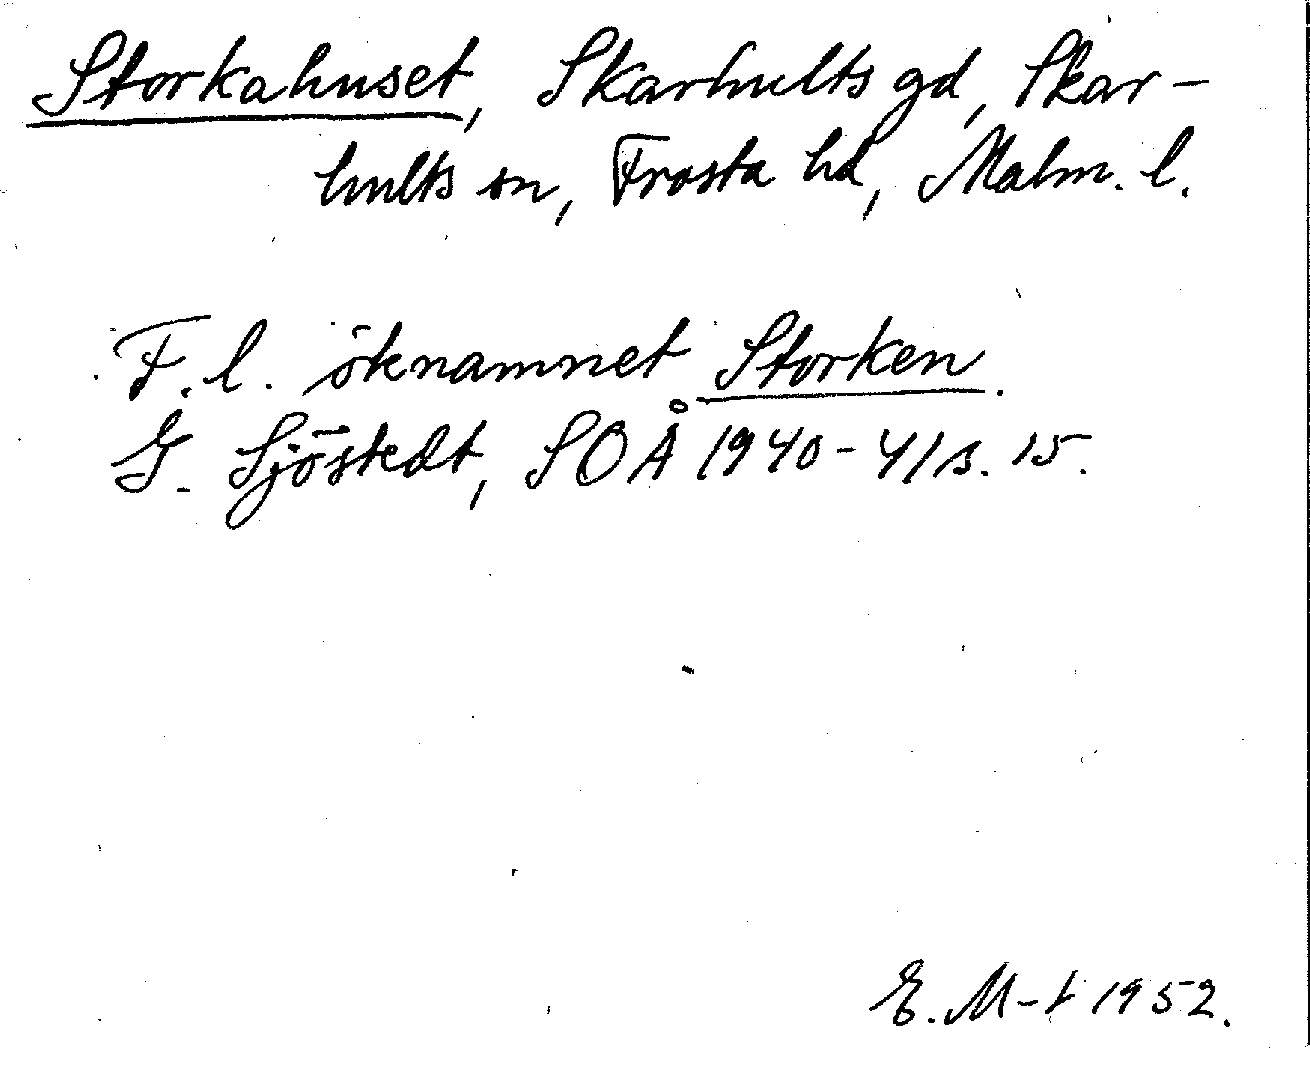 Storkahuset, Skarhults gd, Skar-
hults sn, Frosta hd, Malm. l.
F.l. öknamnet Storken.
G. Sjöstedt, SOÅ 1940-41 s. 15.
E. M-t 1952.